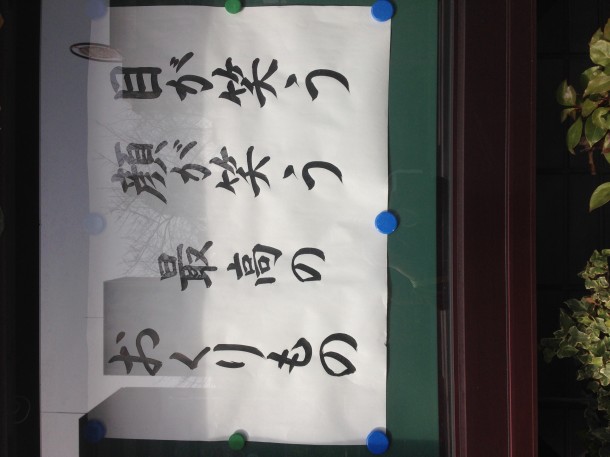 目が笑う
顔が笑う
最高の
おくりもの